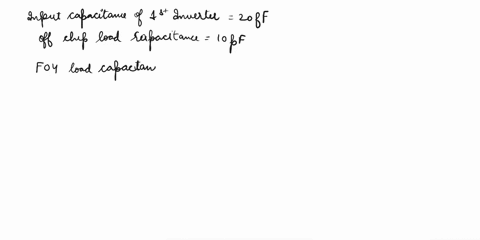 Input capacitance of 1st Inverter = 20 fF
off chip load capacitance = 10 pF
FO4 load capacitan